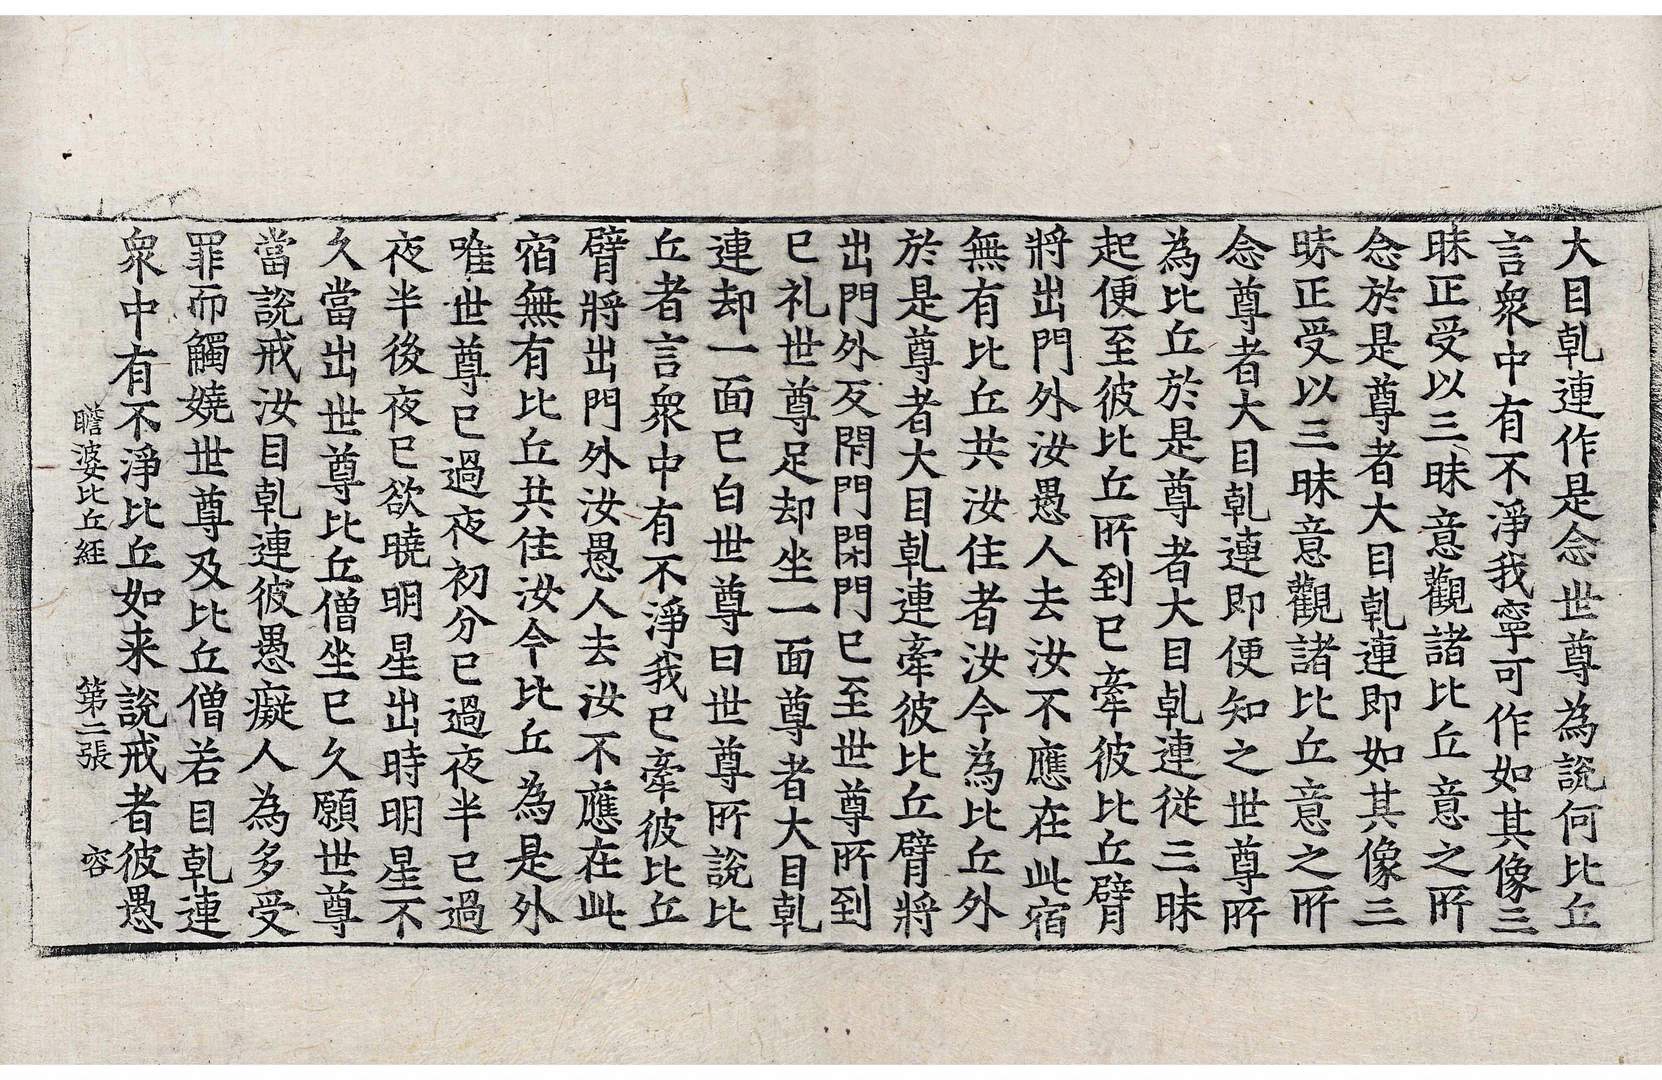 大目乹連作是念世尊為說何比丘
言衆中有不淨我寧可作如其像三
昧正受以三昧意觀諸比丘意之所
念於是尊者大目乹連即如其像三
昧正受以三昧意觀諸比丘意之所
念尊者大目乹連即便知之世尊所
為比丘於是尊者大目乹連從三昧
起便至彼比丘所到已牽彼比丘臂
將出門外汝愚人去汝不應在此宿
無有比丘共汝住者汝今為比丘外
於是尊者大目乹連牽彼比丘臂將
出門外反閇門閇門已至世尊所到
已礼世尊足却坐一面尊者大目乹
連却一面已白世尊曰世尊所說比
丘者言衆中有不淨我已牽彼比丘
臂將出門外汝愚人去汝不應在此
宿無有比丘共住汝今比丘為是外
唯世尊已過夜初分已過夜半已過
夜半後夜已欲曉明星出時明星不
久當出世尊比丘僧坐已久願世尊
當說戒汝目乹連彼愚癡人為多受
罪而觸嬈世尊及比丘僧若目乹連
衆中有不淨比丘如来說戒者彼愚
瞻波比丘経 第二張 容